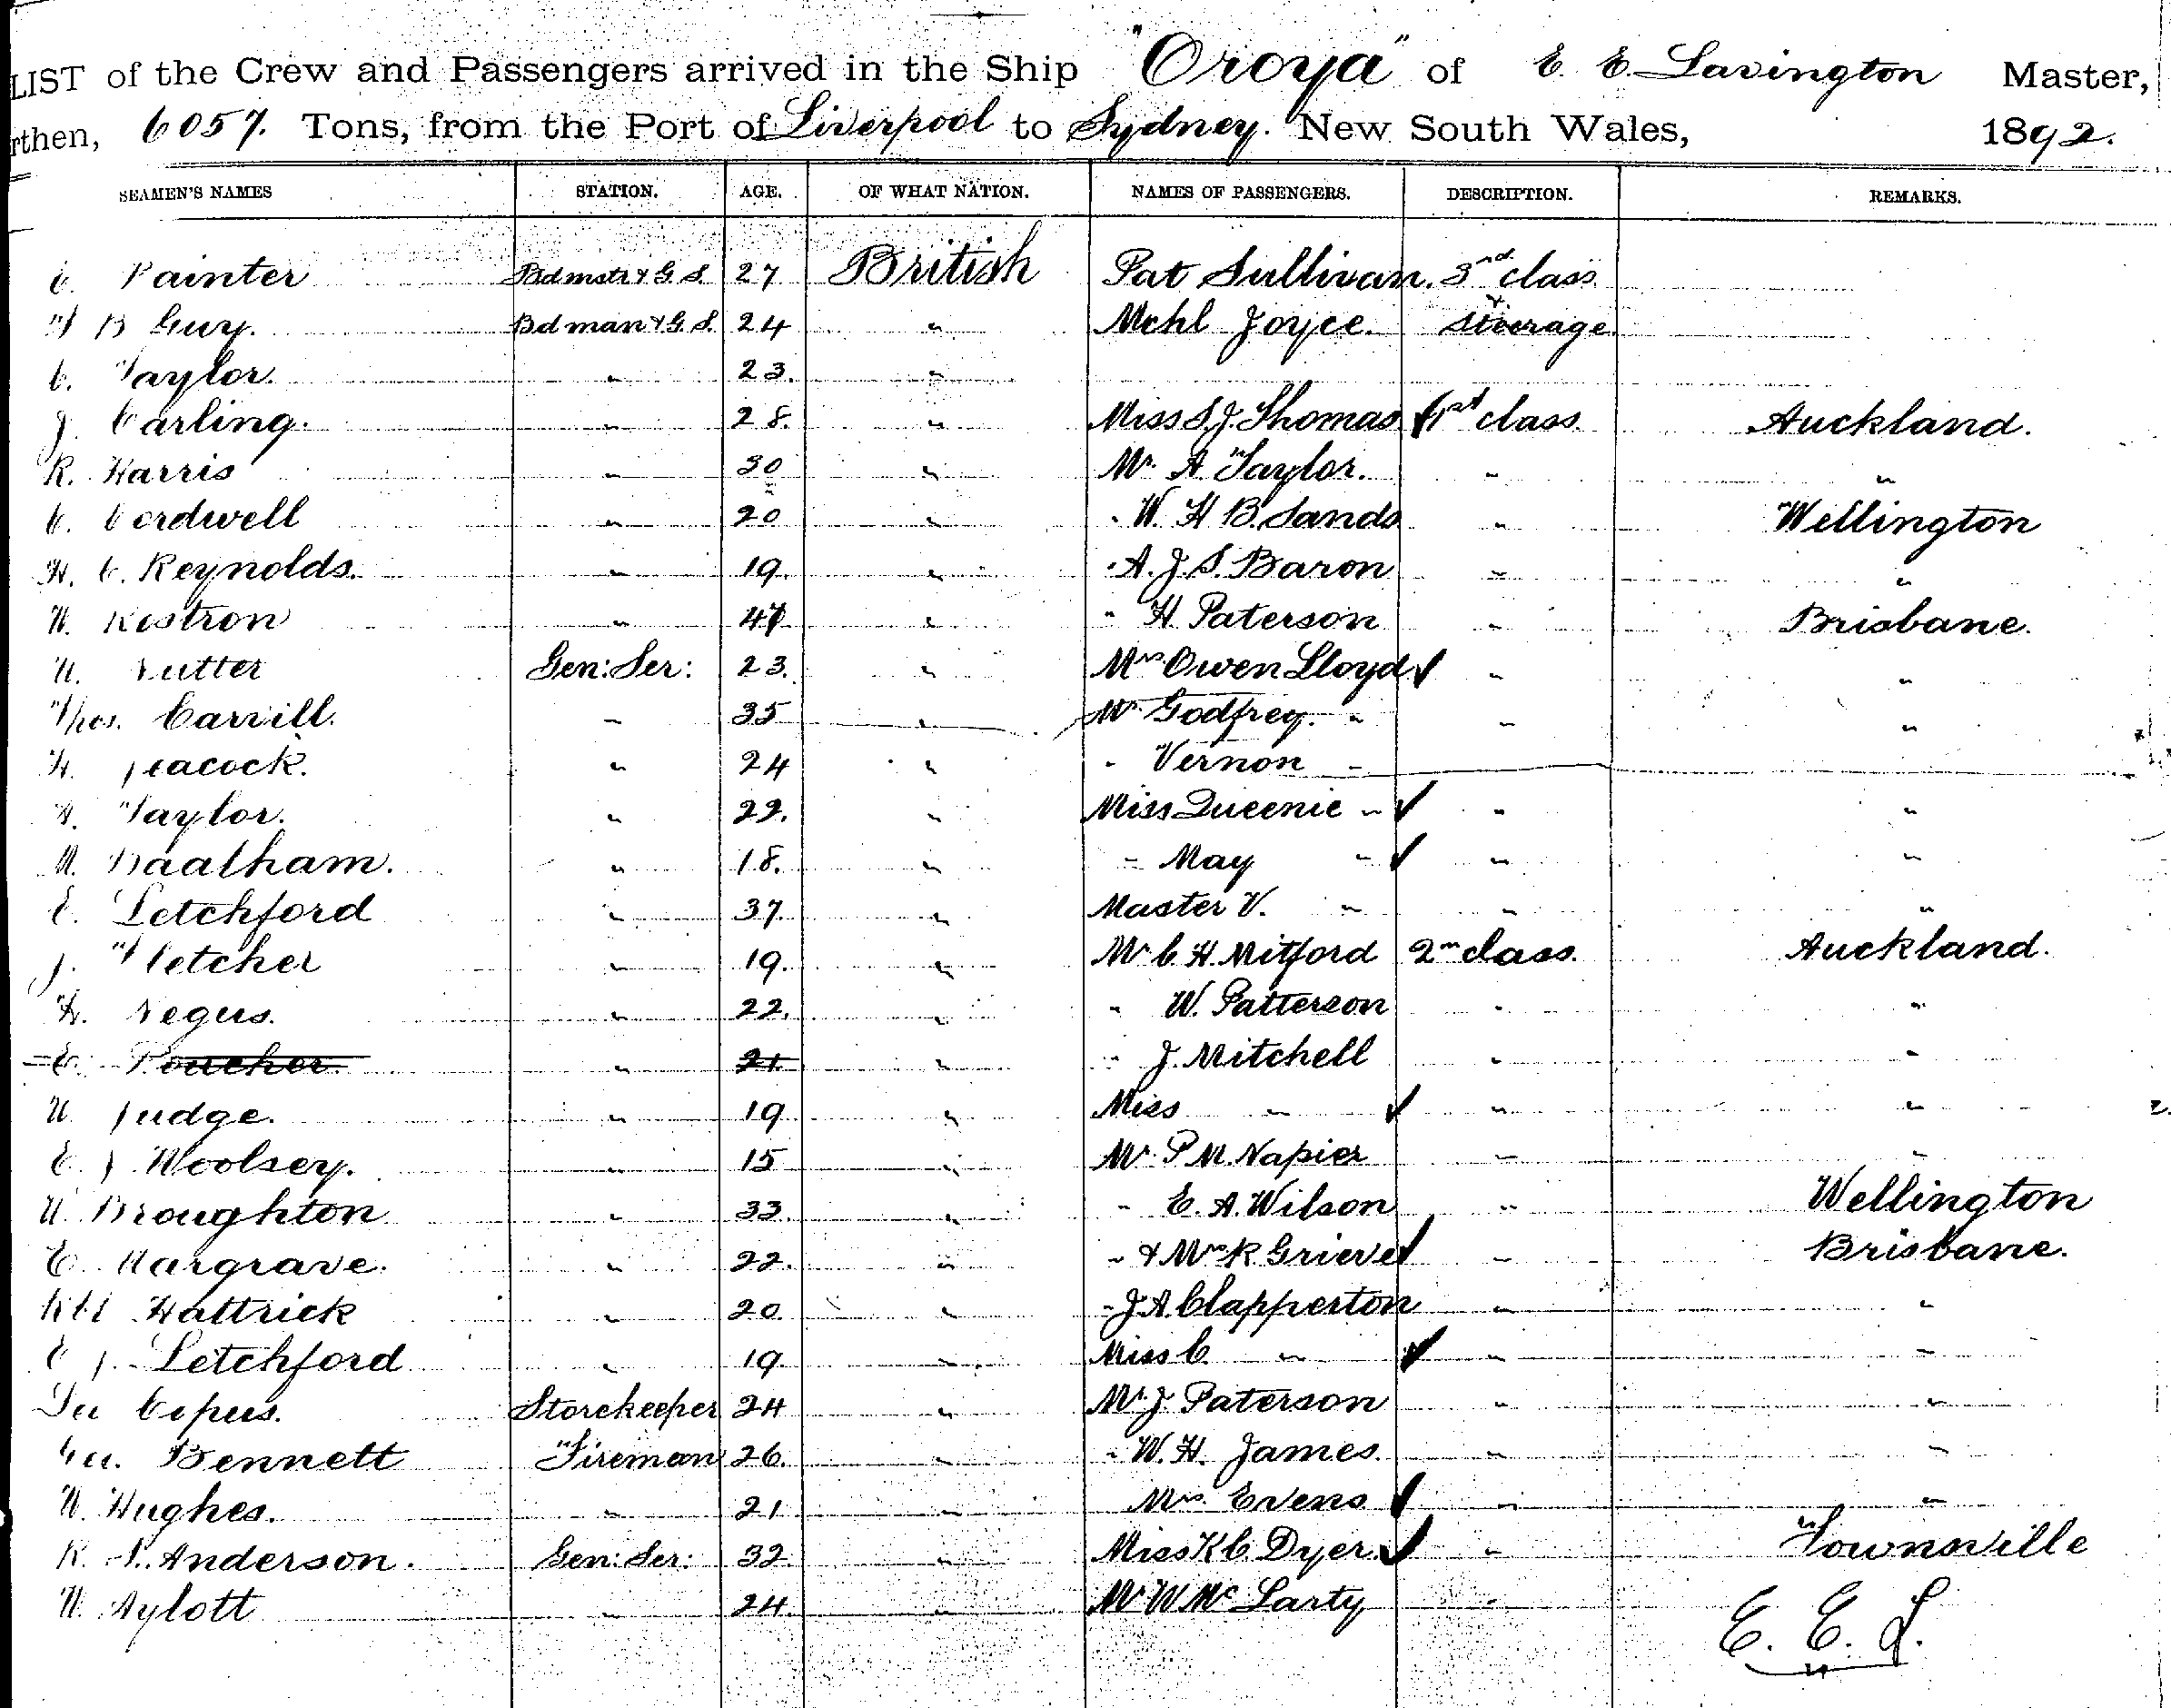 LIST of the Crew and Passengers arrived in the Ship "Oroya" of E. E. Lavington Master,
rthen, 6057. Tons, from the Port of Liverpool to Sydney. New South Wales, 1892.
SEAMEN'S NAMES STATION. AGE. OF WHAT NATION. NAMES OF PASSENGERS. DESCRIPTION. REMARKS.
Painter Bdmstr & G. S. 27 British Pat Sullivan. 3rd class
B Guy. Bdman & G. S. 24 " Mchl Joyce. & Steerage
C. Taylor. " 23. "
J. Carling. " 28. " Miss S. J. Thomas 1st class Auckland.
R. Harris " 30 " Mr. A. Taylor. " "
C. Cordwell " 20 " " W. H B. Sands " Wellington
H. C. Reynolds. " 19. " " A. J. S. Baron " "
W. Kestron " 47 " " H Paterson " Brisbane.
Rutter Gen: Ser: 23. " Mrs Owen Lloyd " "
Thos. Carvill. " 35 " Mr. Godfrey. " " "
H. Peacock. " 24 " " Vernon "
Taylor. " 22. " Miss Queenie " " "
Baalham. " 18. " " May " " "
E. Letchford " 37. " Master V. " " "
J. Fletcher " 19. " Mr C. H. Mitford 2nd class. Auckland.
H. Negus. " 22. " " W. Patterson " "
E. Poucher. " 21. " " J. Mitchell " "
W. Judge. " 19 " Miss " " "
E. J. Woolsey. " 15 " Mr. P M. Napier " "
W. Broughton " 33. " " E. A. Wilson " Wellington
E. Hargrave. " 22. " " & Mrs R Grieve " Brisbane.
Hattrick " 20. " " J A. Clapperton " "
E J. Letchford " 19 " Miss C. " " "
Copus. Storekeeper 24 " Mr. J. Paterson " "
Bennett Fireman 26. " " W. H. James. " "
W. Hughes. " 21 " Mrs. Evens " "
R. S. Anderson. Gen: Ser: 32 " Miss K C. Dyer. " Townsville
W. Aylott " 24. " Mr W Mc Larty "
E. E. L.